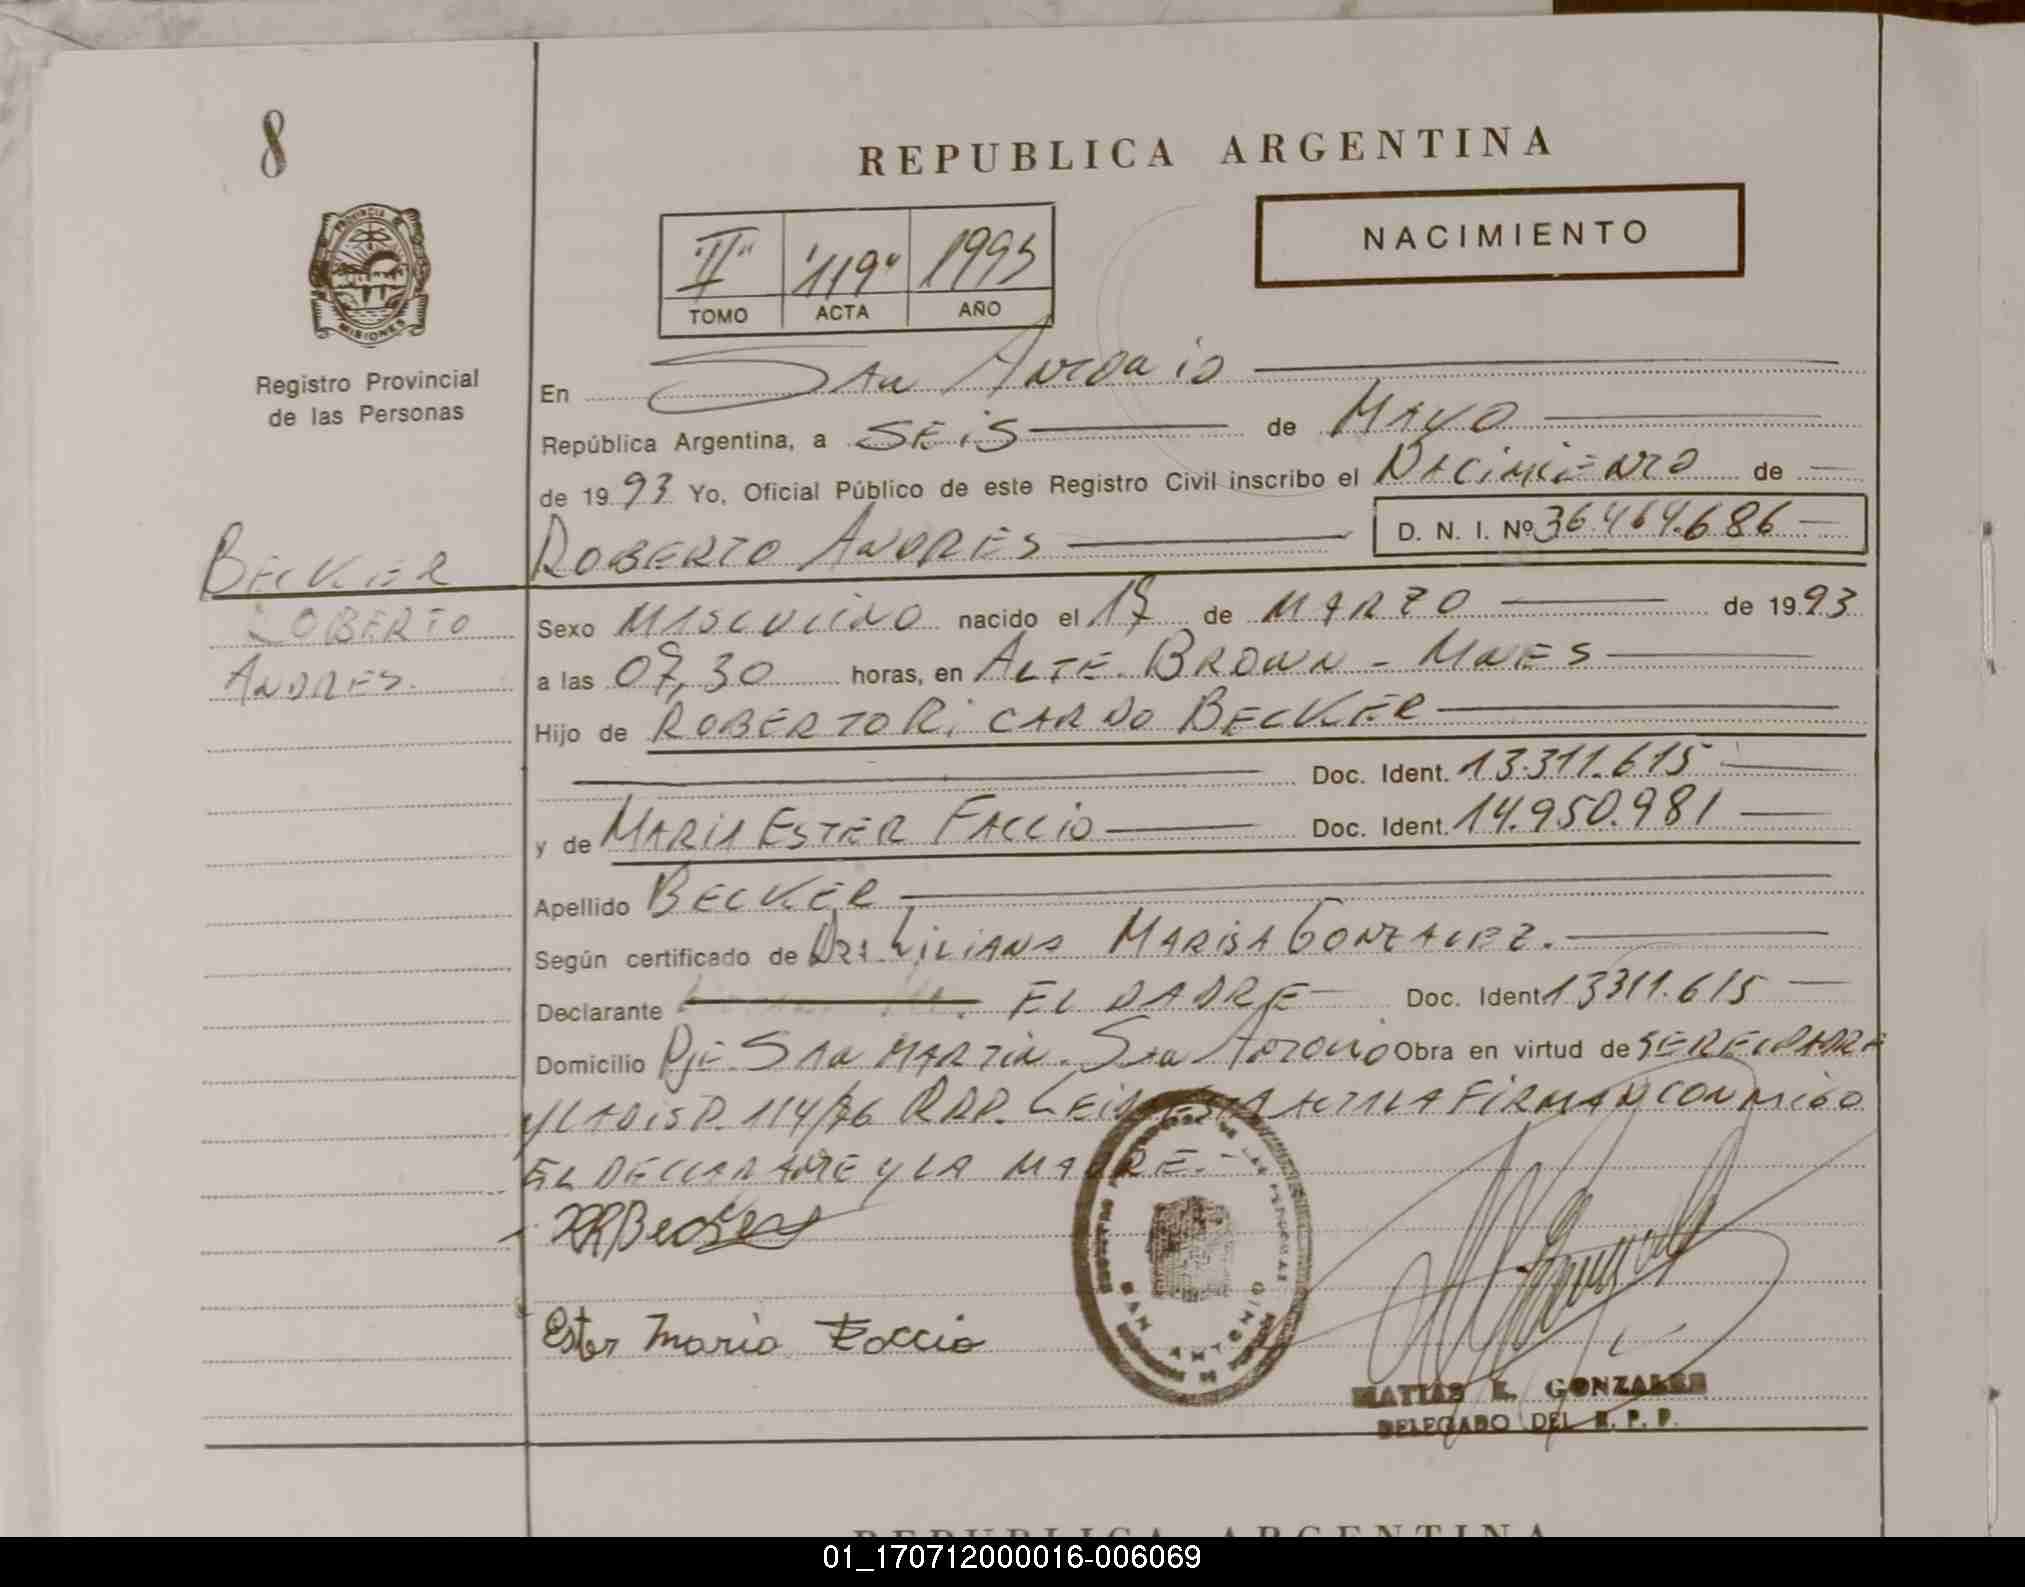 8
REPUBLICA ARGENTINA
NACIMIENTO
"II" "119" 1993
TOMO ACTA AÑO
PROVINCIA DE
MISIONES
Registro Provincial
de las Personas
En San Antonio
República Argentina, a SEIS de MAYO
de 1993 Yo, Oficial Público de este Registro Civil inscribo el NACIMIENTO de
BECKER ROBERTO ANDRES D. N. I. Nº 36.464.686
ROBERTO
ANDRES.
Sexo MASCULINO nacido el de MARZO de 1993
a las 07,30 horas, en ALTE. BROWN - MNES
Hijo de ROBERTO RICARDO BECKER
Doc. Ident. 13.311.615
y de MARIA ESTER FACCIO Doc. Ident. 14.950.981
Apellido BECKER
Según certificado de DRA LILIANA MARISA GONZALEZ.
Declarante EL PADRE Doc. Ident 13311.615
Domicilio PJE SAN MARTIN. San Antonio Obra en virtud de SER EL PADRE
Y LA DISP. 114/86 RPP. LEIDA ESTA ACTA LA FIRMAN CONMIGO
EL DECLARANTE Y LA MADRE.-
RRBecker
Ester Maria Faccio
SAN ANTONIO
MATIAS E. GONZALEZ
DELEGADO DEL R. P. P.
REPUBLICA ARGENTINA
01_170712000016-006069